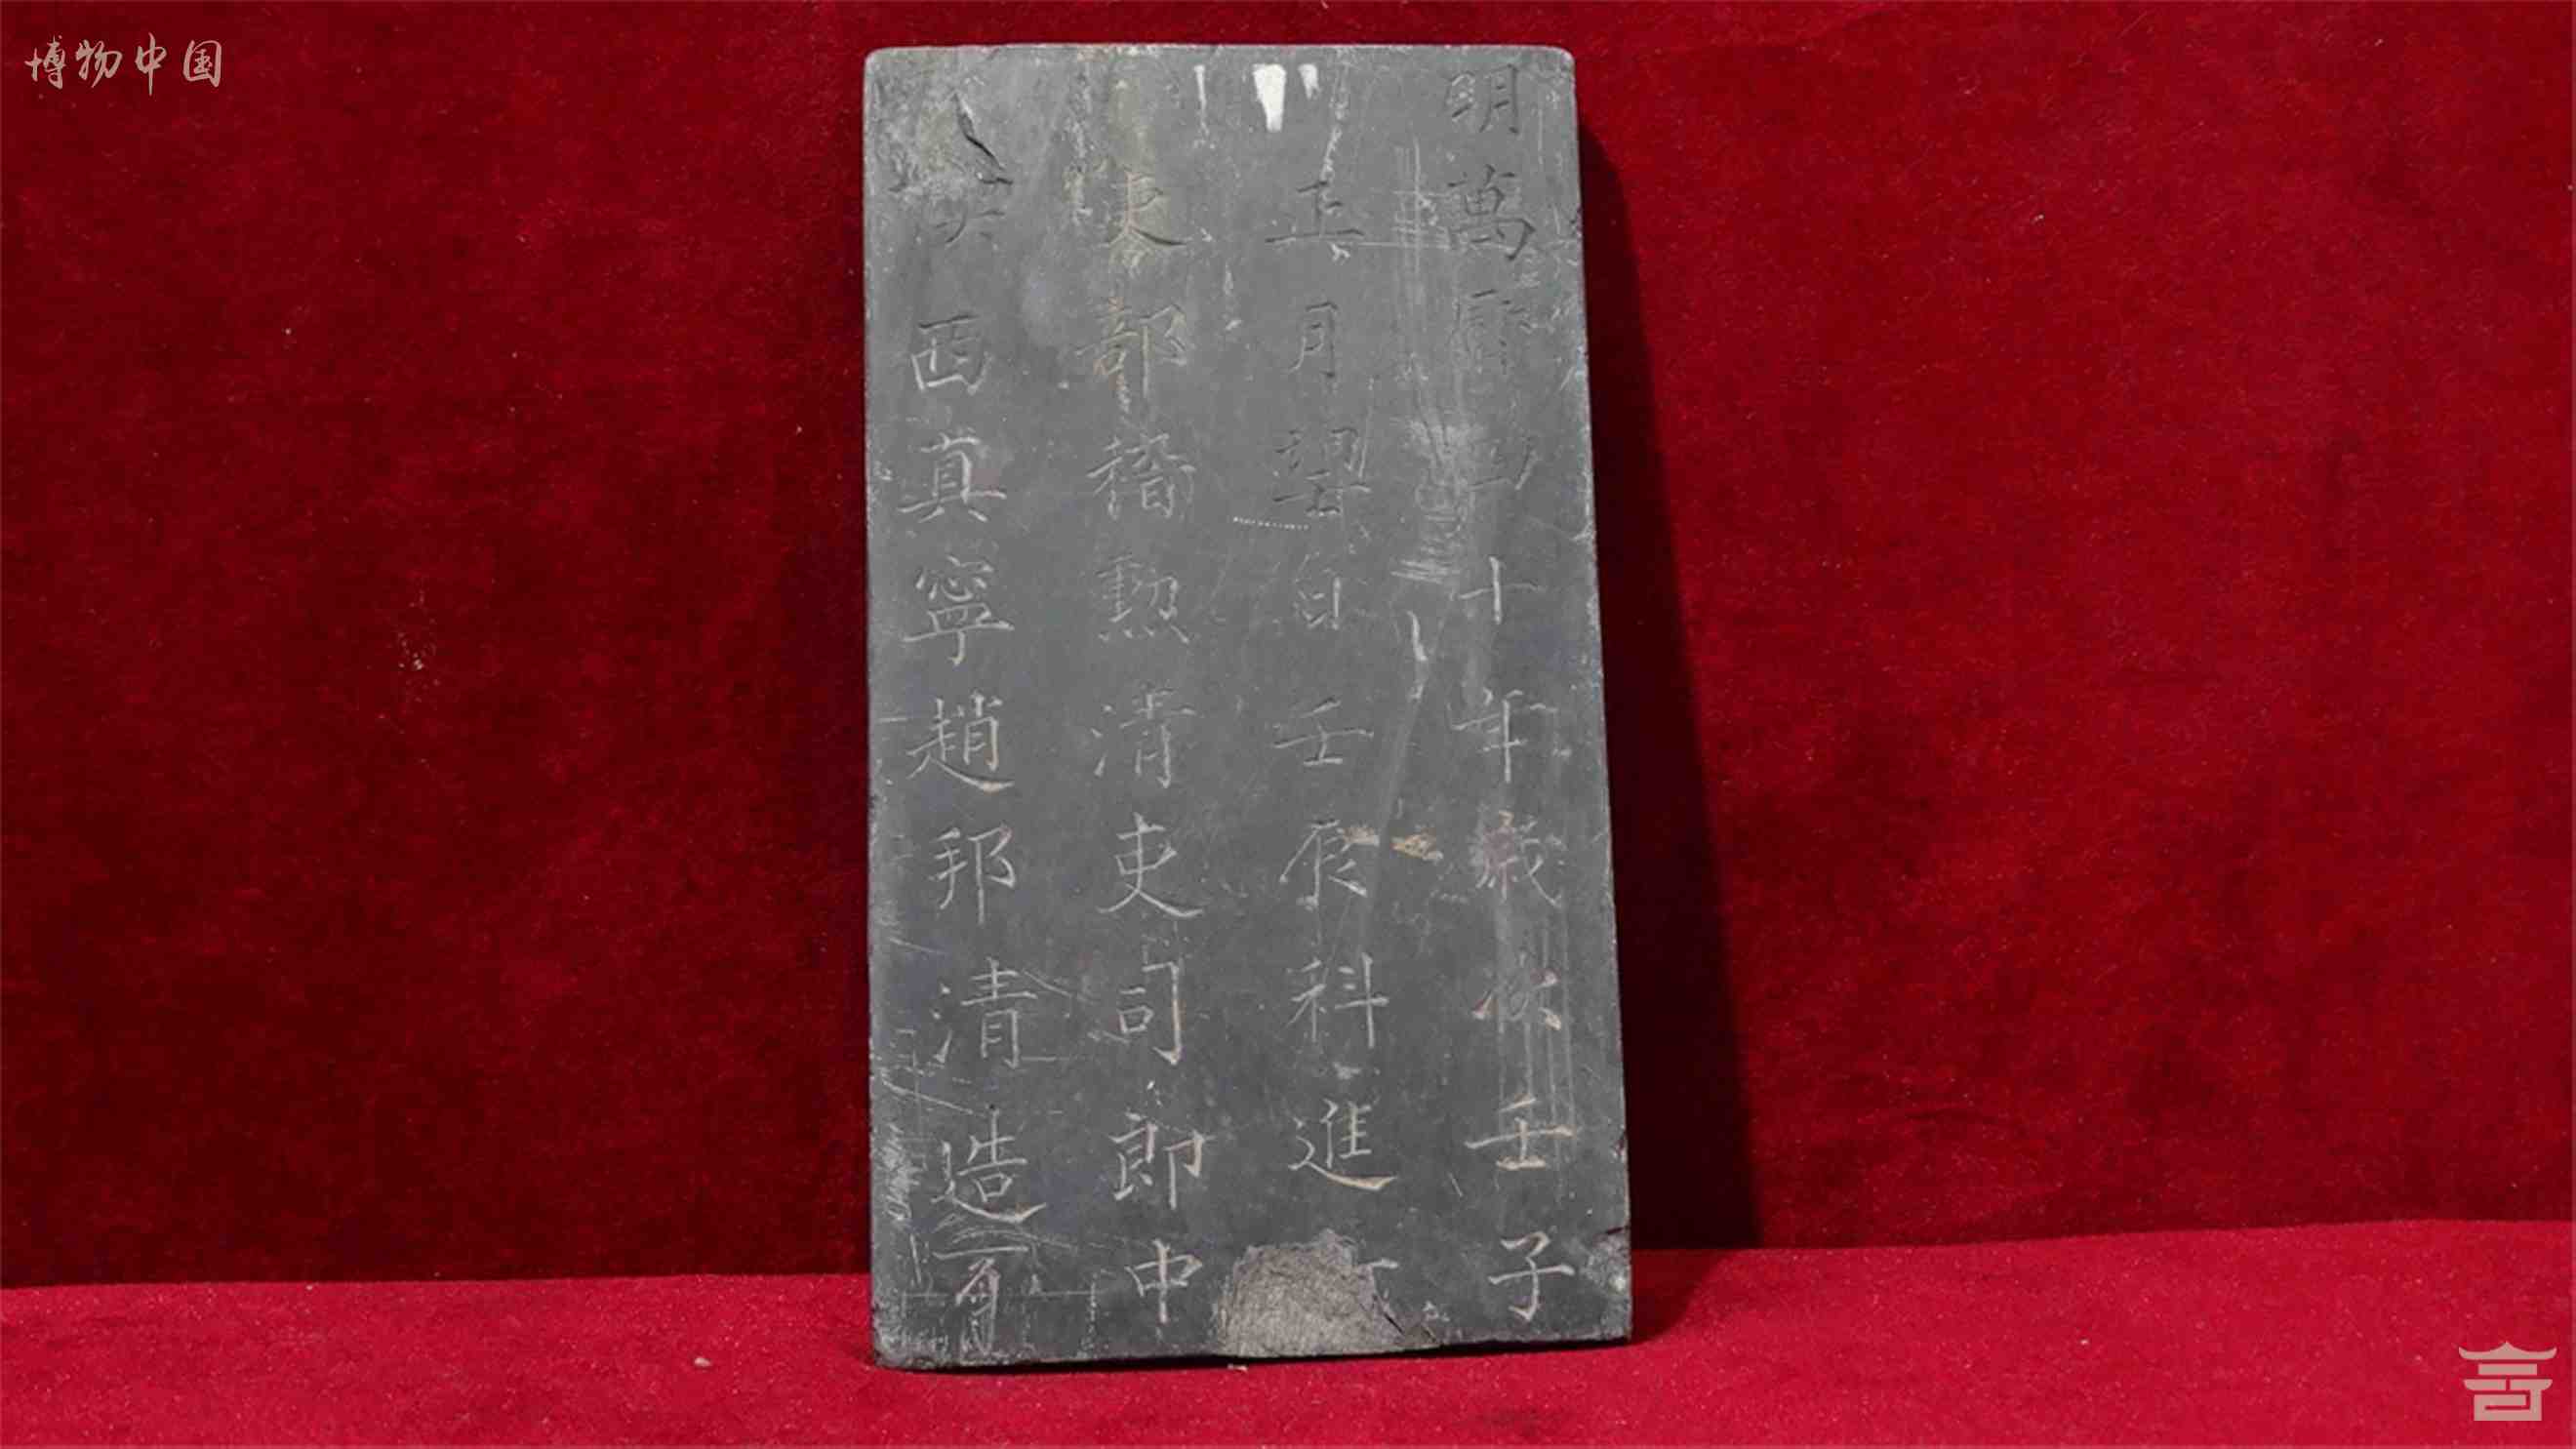 博物中国
明萬曆四十年歲次壬子
正月望日壬辰科進
吏部稽勲清吏司郎中
西真寧趙邦清造